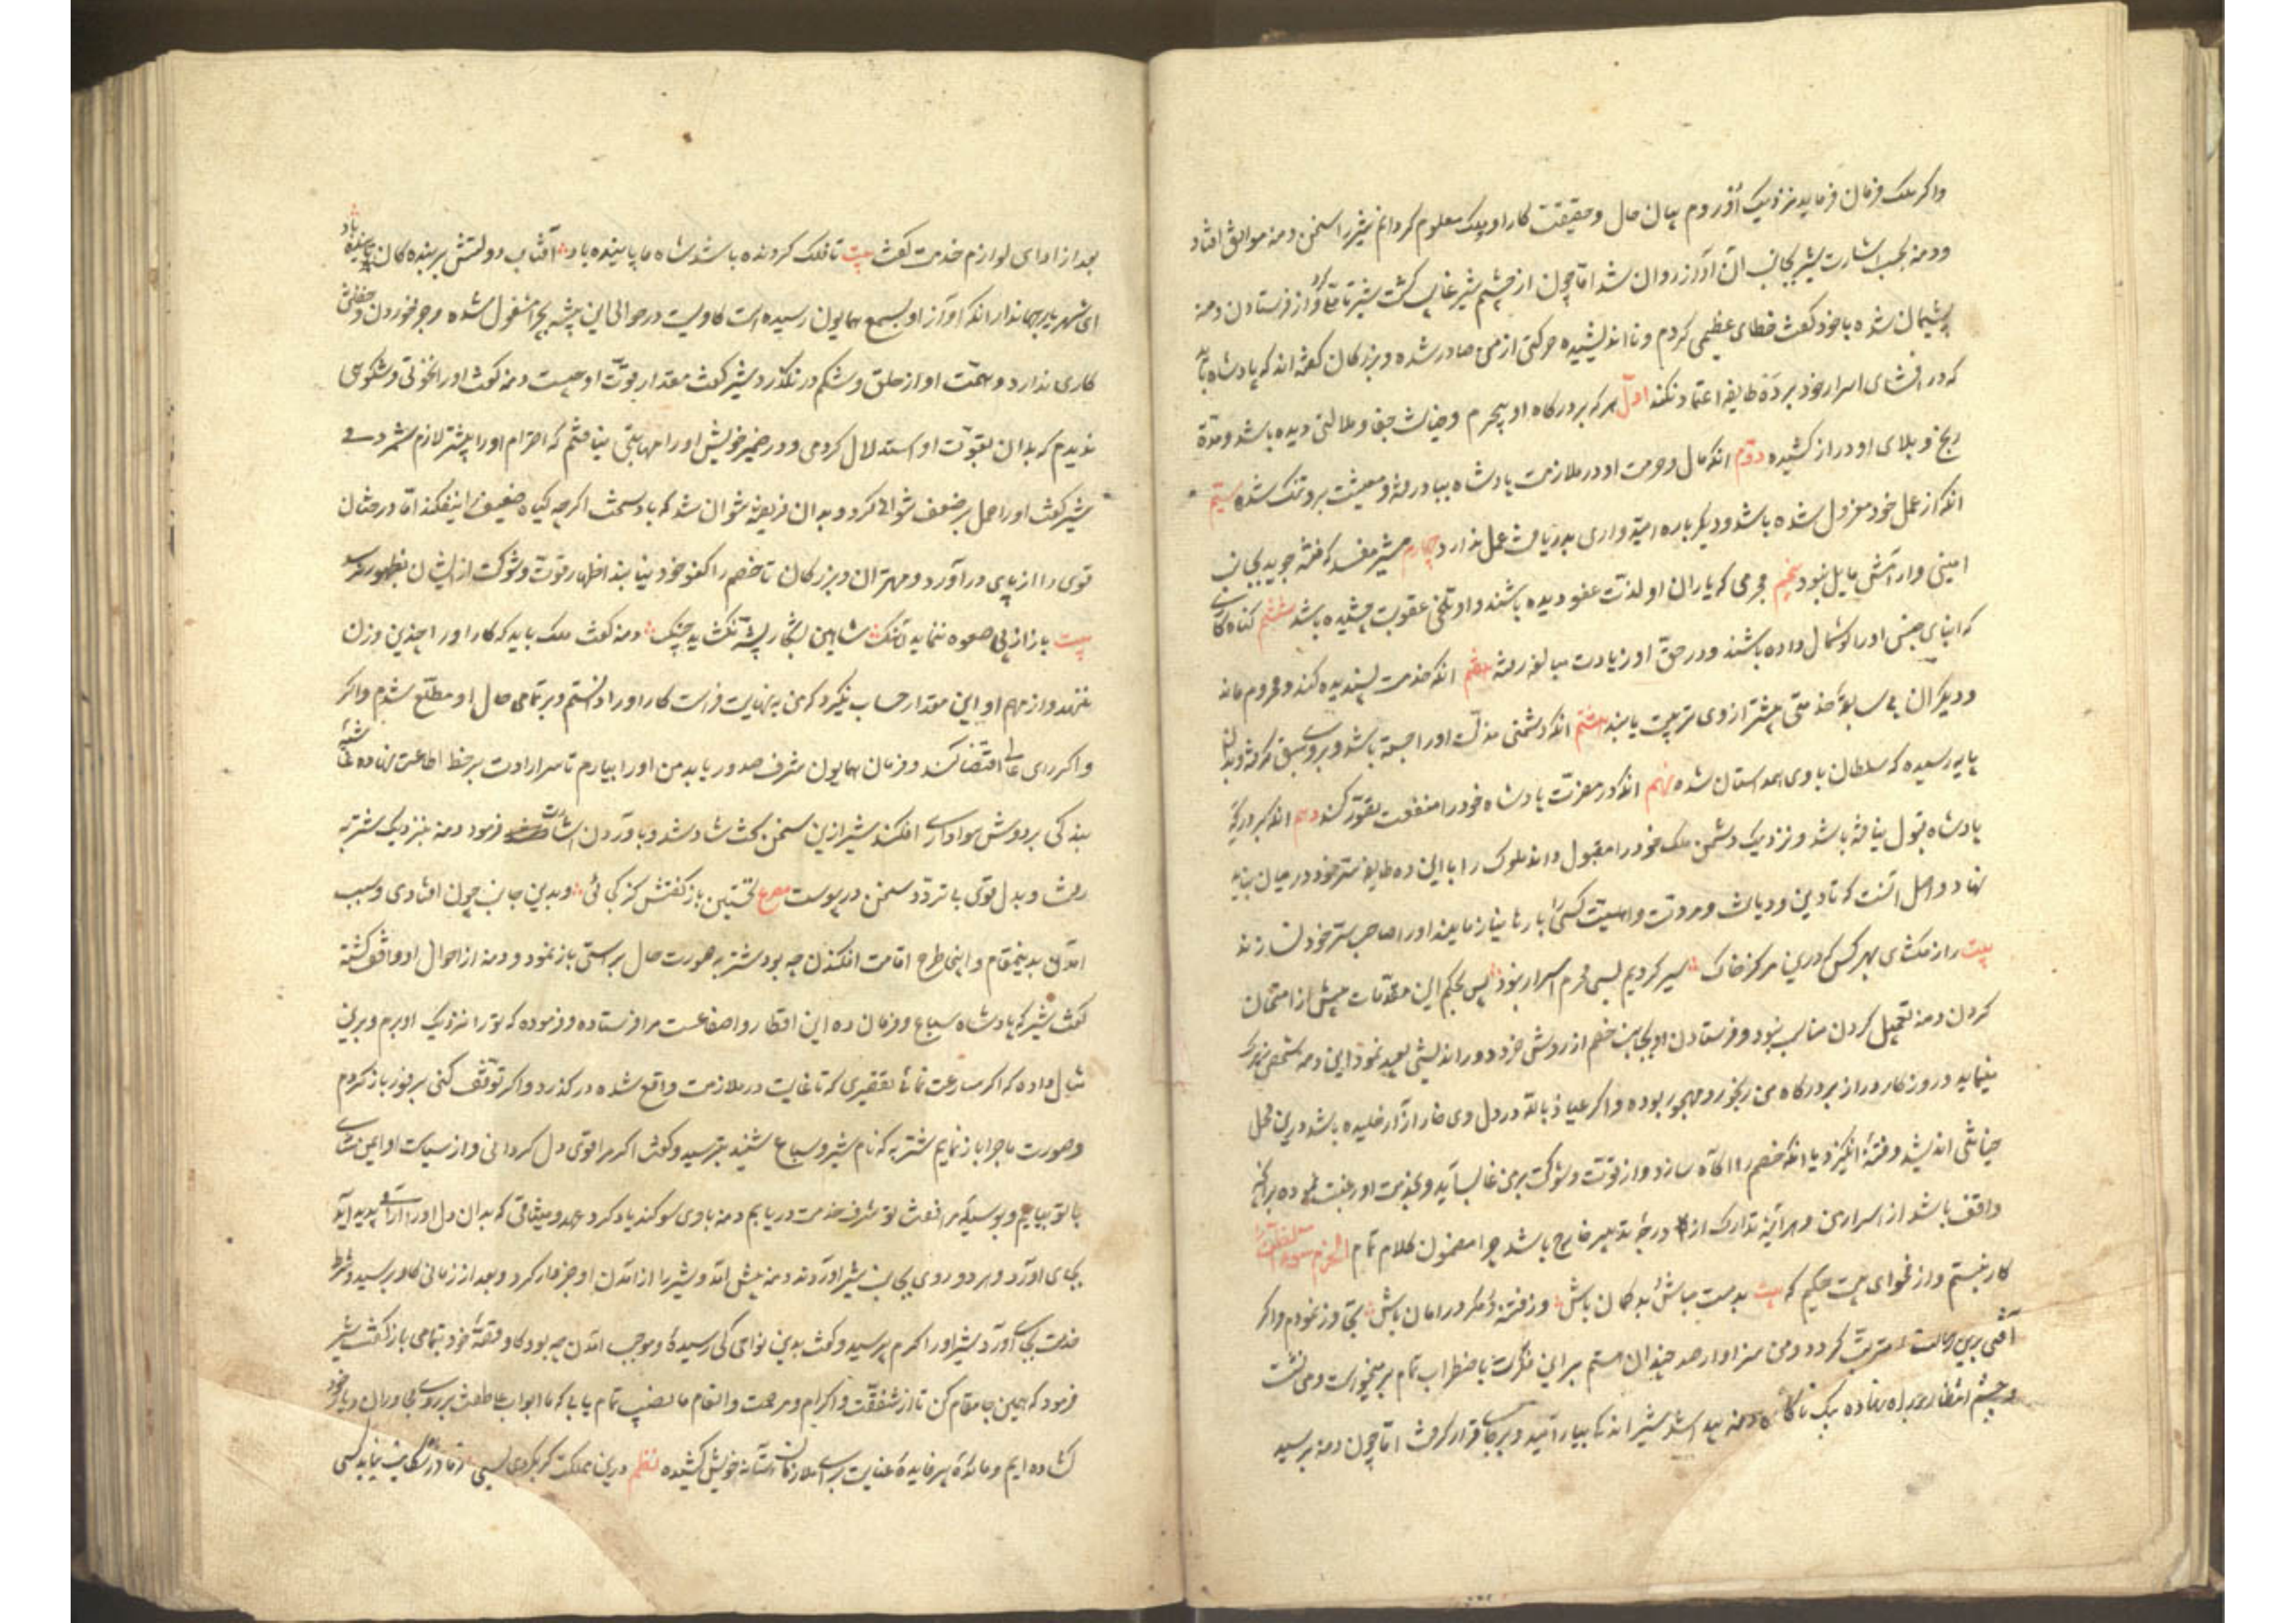 واکر ملک فرمان فرماید نزدیک او روم بیان حال و حقیقت کار او بملک معلوم کردانم شیر را سخن دمنه موافق افتاد
ودمنه بحسب اشارت شیر بجانب آن آواز روان شد اما چون از چشم شیر غایب کشت شیر تاملی کرد و از فرستادن دمنه
پشیمان شده با خود کفت خطای عظیمی کردم و نااندیشیده حرکتی از من صادر شده و بزرکان کفته اند که پادشاه باید
که در افشای اسرار خود بر ده طایفه اعتماد نکند اول هر که بر درکاه او بیجرم و خیانت جفا و ملالتی دیده باشد و مدة
رنج و بلای او دراز کشیده دوم انکه مال و حرمت او در ملازمت پادشاه بباد رفته و معیشت برو تنک شده سیم
انکه از عمل خود معزول شده باشد و دیکر باره امیدواری بدریافت عمل ندارد چهارم شریر مفسد که فتنه جوید بجانب
امینی و آرامش مایل نبود پنجم مجرمی که یاران او لذت عفو دیده باشند و او تلخی عقوبت چشیده باشد ششم کناه کاری
که ابنای جنس او را کوشمال داده باشند و در حق او زیادت مبالغه رفته هفتم انکه خدمت پسندیده کند و محروم ماند
و دیکران بی سابقهٔ خدمتی بیشتر از وی تربیت یابند هشتم انکه دشمنی منزلت او را جسته باشد و بروی سبق کرفته و بدان
پایه رسیده که سلطان با وی همداستان شده نهم انکه در مضرت پادشاه خود را منفعت تصور کند دهم انکه بر درکه
پادشاه قبول نیافته باشد و نزدیک دشمن ملک خود را مقبول داند ملوک را با این ده طایفه سر خود در میان نباید
نهاد و اصل آنست که تا دین و دیانت و مروت و اهلیت کسی را بارها نیازمایند او را صاحب سر خود نسازند
بیت راز مکشای بهر کس که درین مرکز خاک سیر کردیم بسی محرم اسرار نبود پس بحکم این مقدمات پیش از امتحان
کردن دمنه تعجیل کردن مناسب نبود و فرستادن او بجانب خصم از روش خرد و دور اندیشی بعید نمود این دمنه شخصی زیرک
مینماید و روزکار دراز بر درکاه من رنجور و مهجور بوده و اکر عیاذ بالله در دل وی خار آزار خلیده باشد درین محل
خیانتی اندیشد و فتنهٔ انکیزد یا انکه خصم را آکاه سازد و از قوت و شوکت بر من غالب آید و بخدمت او رغبت نموده برآنچه
واقف باشد از اسرار من و هرآینه تدارک آن از درجهٔ تدبیر خارج باشد چرا مضمون کلام تمام الحزم سوء الظن
کار نبستم و از فحوای بیت حکیم که بیت بد مست مباش بد کمان باش وز فتنه و مکر در امان باش تجاوز نمودم و اکر
آفتی برین رسالت مترتب کردد و من سزاوار صد چندان هستم برین فکرت باضطراب تمام بر میخواست و می نشست
و چشم انتظار بر راه نهاده یک ناکاه دمنه پیدا شد شیر اندکی بیارامید و بر جای قرار کرفت اما چون دمنه برسید
بعد از ادای لوازم خدمت کفت بیت تا فلک کردنده باشد شاه ما پاینده باد آفتاب دولتش بر بنده کان تابنده باد
ای شهریار جهاندار انکه آواز او بسمع همایون رسیده است کاویست در حوالی این بیشه بچرا مشغول شده و جز خوردن و خفتن
کاری ندارد و همت او از حلق و شکم در نکذرد شیر کفت مقدار قوت او چیست دمنه کفت او را نخوتی و شکوهی
ندیدم که بدان بقوت او استدلال کردمی و در ضمیر خویش او را مهابتی نیافتم که احترام او را بیشتر لازم شمردمی
شیر کفت او را حمل بر ضعف نتوان کرد و بدان فریفته نتوان شد که باد سخت اکرچه کیاه ضعیف را نیفکند اما درختان
قوی را از پای درآورد و مهتران و بزرکان تا خصم را کفو خود نیابند اظهار قوت و شوکت از ایشان بظهور نرسد
بیت باز از پی صعوه ننماید آهنک شاهین بشکار پشه نکشاید چنک دمنه کفت ملک باید که کار او را چندین وزن
ننهد و از مهم او این مقدار حساب نکیرد که من بنهایت فراست کار او را دانستم و بر تمامی حال او مطلع شدم و اکر
و اکر رای عالی اقتضا کند و فرمان همایون شرف صدور یابد من او را بیارم تا سر ارادت بر خط اطاعت نهاده غاشیهٔ
بندکی بر دوش هواداری افکند شیر ازین سخن شاد شد و بآوردن اشارت فرمود دمنه بنزدیک شنزبه
رفت و بدل قوی بی تردد سخن در پیوست مصرع نخستین باز کفتش کز کجائی و بدین جانب چون افتادی و سبب
آمدن بدینمقام و اینجا طرح اقامت افکندن چه بود شنزبه صورت حال براستی باز نمود و دمنه از احوال او واقف کشته
کفت شیر که پادشاه سباع و فرمان ده این اقطار و اصقاعست مرا فرستاده و فرموده که تو را نزدیک او برم و برین
مثال داده که اکر مسارعت نمائی تقصیری که تا غایت در ملازمت واقع شده در کذرد و اکر توقف کنی بر فور باز کردم
و صورت ماجرا باز نمایم شنزبه که نام شیر و سباع شنید بترسید و کفت اکر مرا قوی دل کردانی و از سیاست او ایمن سازی
با تو بیایم و بوسیلهٔ مرافقت تو شرف خدمت دریابم دمنه با وی سوکند یاد کرد و عهد و میثاقی که بدان دل او را آرامی پدید آید
بجای آورد و هر دو روی بجانب شیر آوردند دمنه پیش آمد و شیر را از آمدن او خبردار کرد و بعد از زمانی کاو برسید و شرط
خدمت بجای آورد شیر او را کرم پرسید و کفت بدین نواحی کی رسیدهٔ و موجب آمدن چه بود کاو قصهٔ خود بتمامی باز کفت شیر
فرمود که همین جا مقام کن تا از شفقت و اکرام و مرحمت و انعام ما نصیب تمام یابی که ما ابواب عاطفت بر روی مجاوران دیار خود
کشاده ایم و مائدهٔ پر فایدهٔ عنایت برای ملازمان آستانه خویش کشیده نظم درین مملکت کر بکردی بسی ز ما در شکایت نیابی کسی